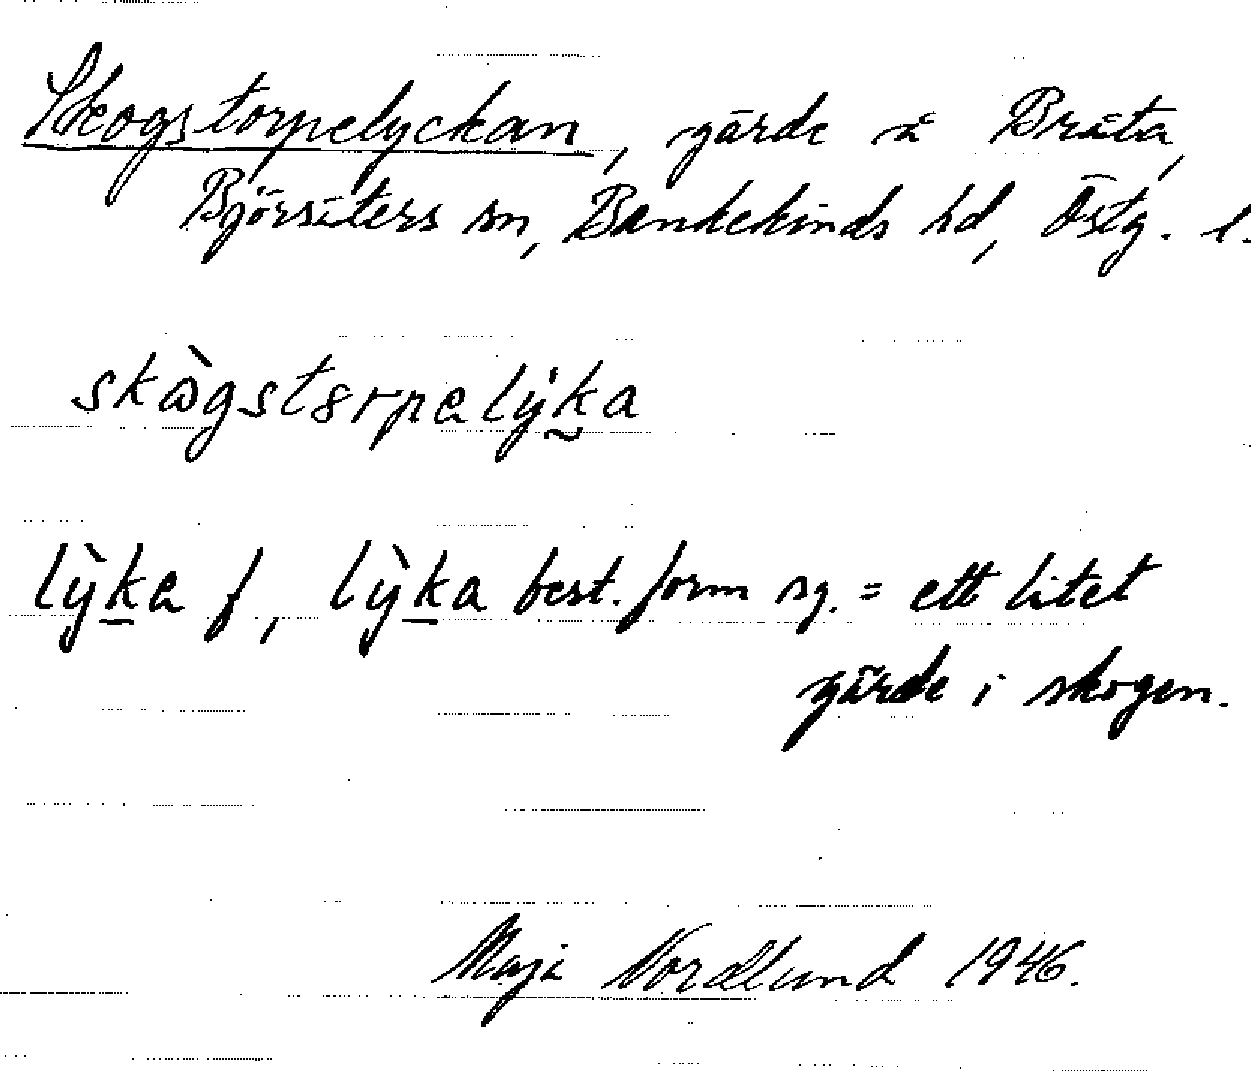 Skogstorpelyckan, gärde å Bråta,
Björsäters sn, Bankekinds hd, Östg. l.
skògstorpelẏka
lỳka f, lỳka best. form sg. = ett litet
gärde i skogen.
Maja Nordlund 1946.